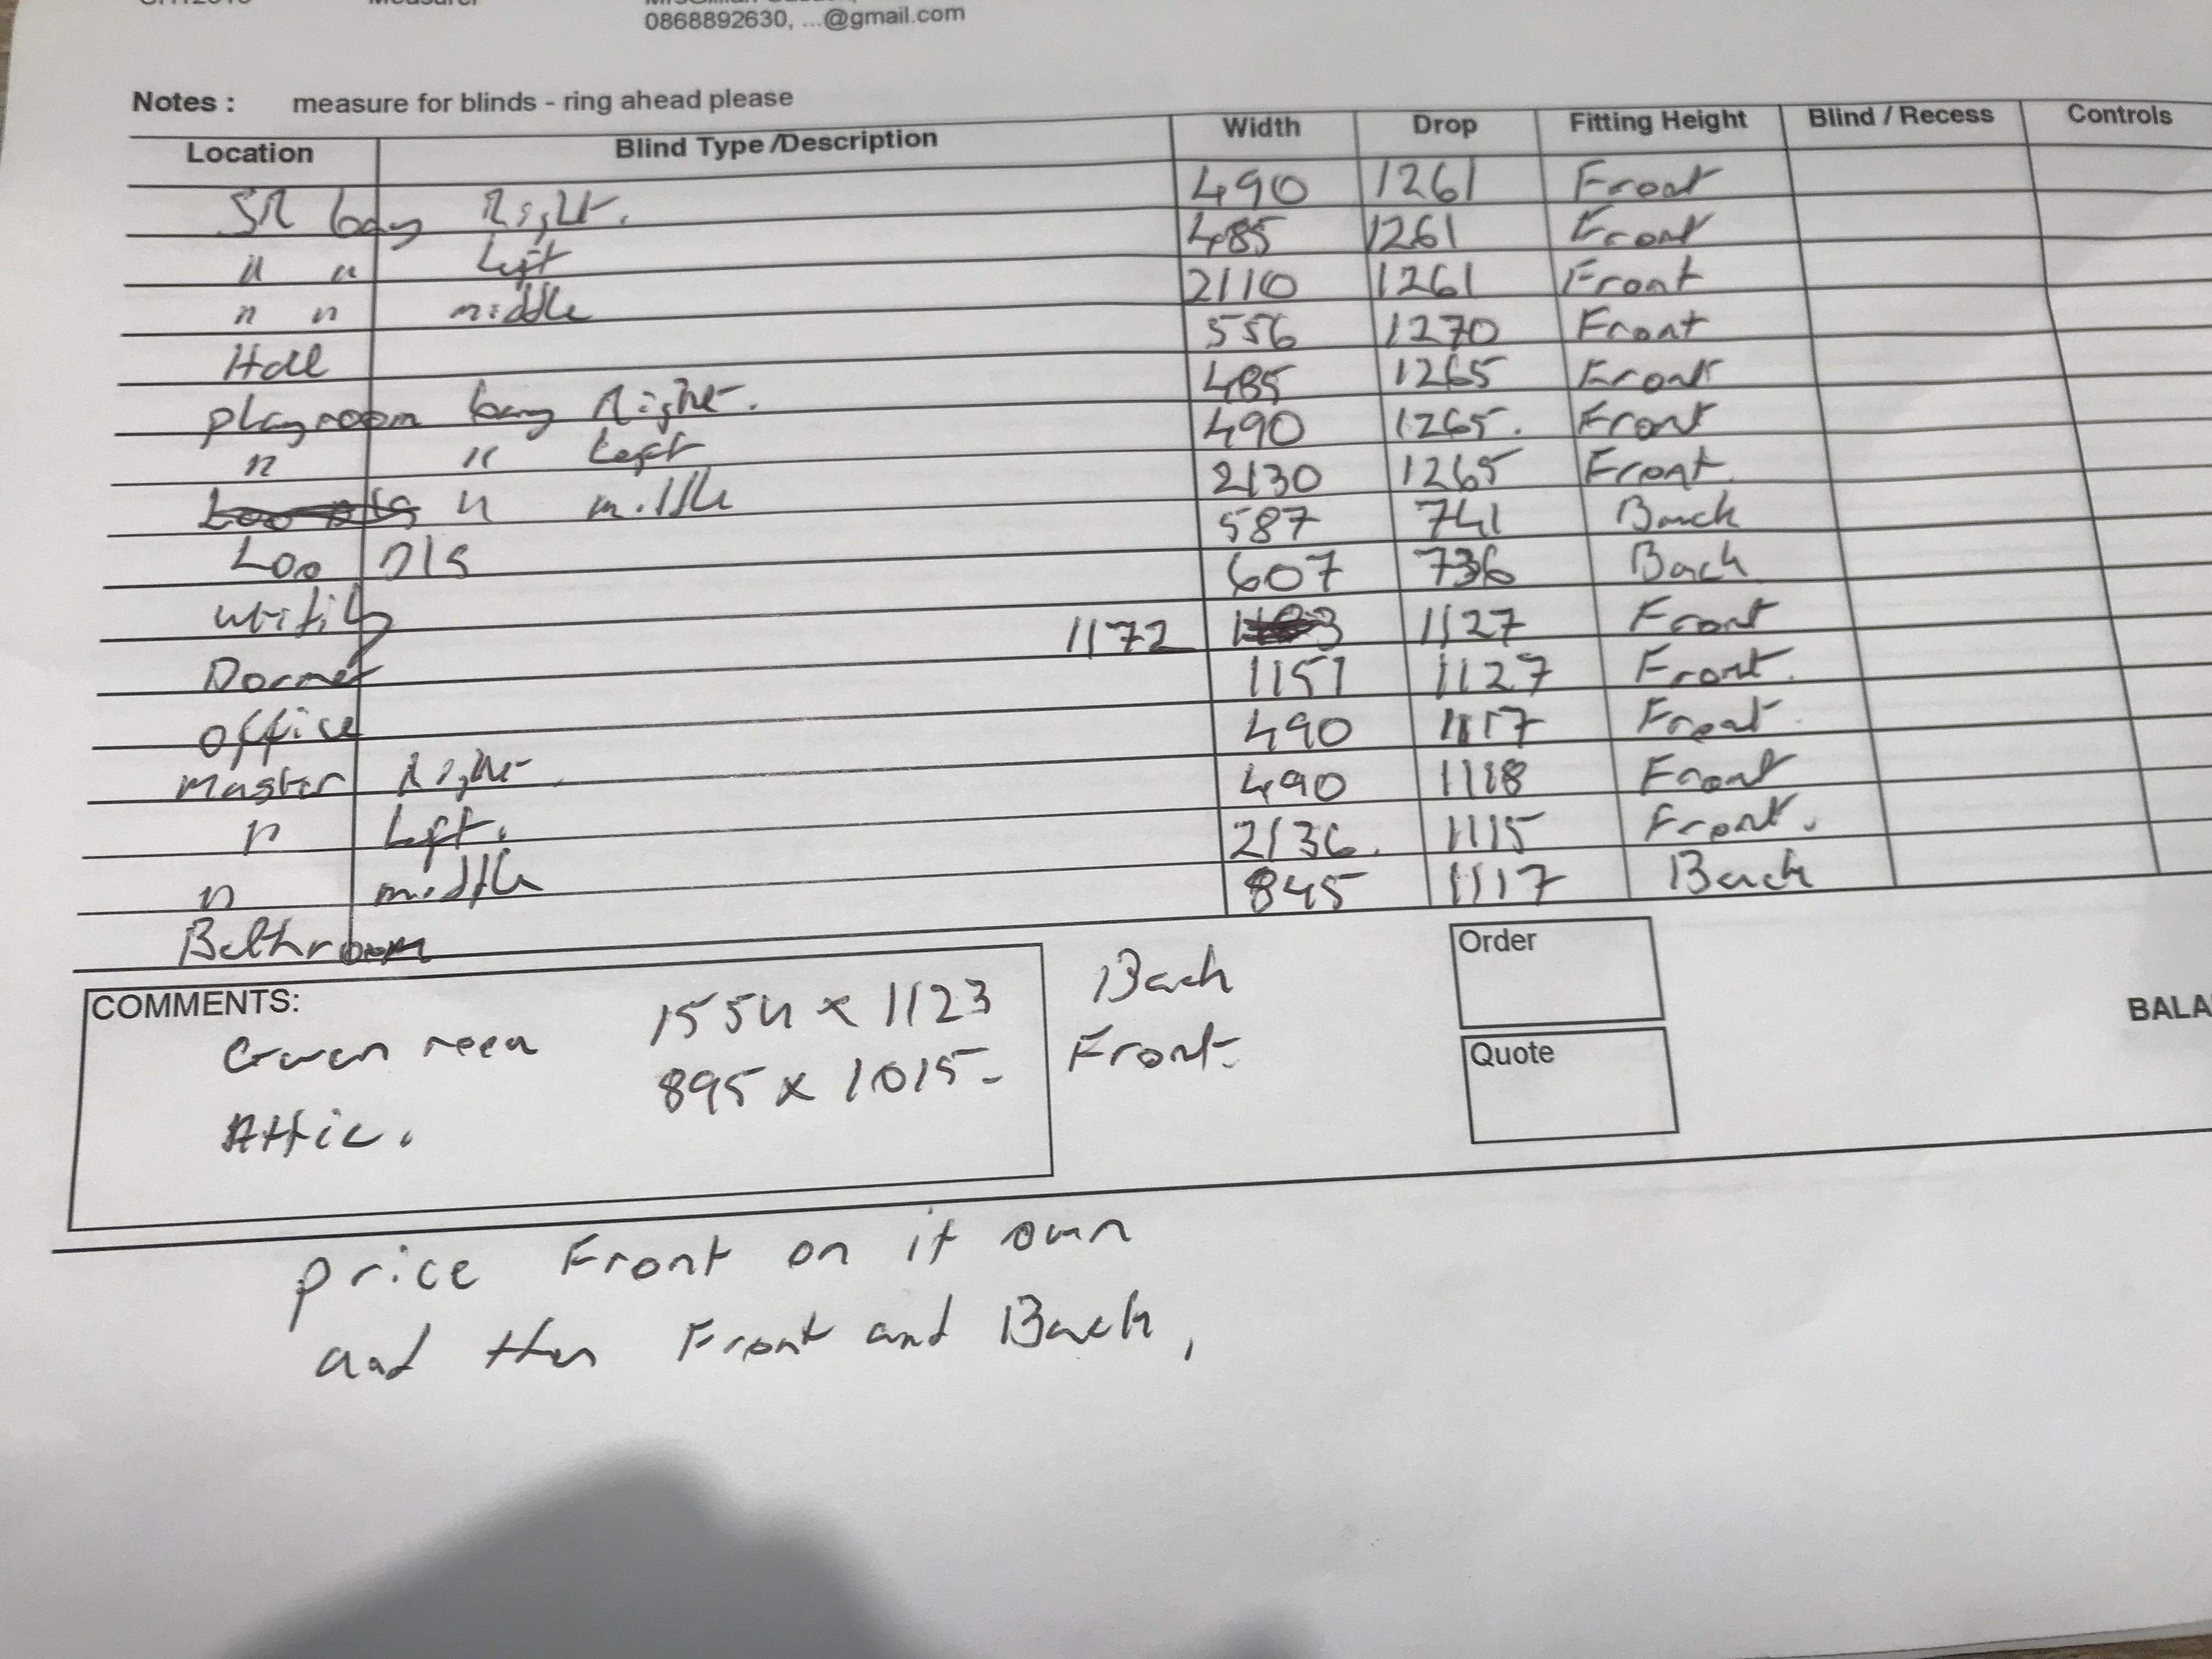 0868892630, ...@gmail.com
Notes : measure for blinds - ring ahead please
Location Blind Type /Description Width Drop Fitting Height Blind / Recess Controls
SR bay Right. 490 1261 Front
" " Left 485 1261 Front
" " middle 2110 1261 Front
Hall 556 1270 Front
playroom bay Right. 485 1265 Front
" " Left 490 1265. Front
" middle 2130 1265 Front.
Loo D/S 587 741 Back
utility 607 736 Back
Dormer 1172 1127 Front
office 1151 1127 Front.
master Right. 490 1117 Front.
" Left. 490 1118 Front
" middle 2136. 1115 Front.
Bathroom 845 1117 Back
COMMENTS:
1554 x 1123 Back
Attic. 895 x 1015- Front.
Order
Quote
price Front on it own
and then Front and Back,